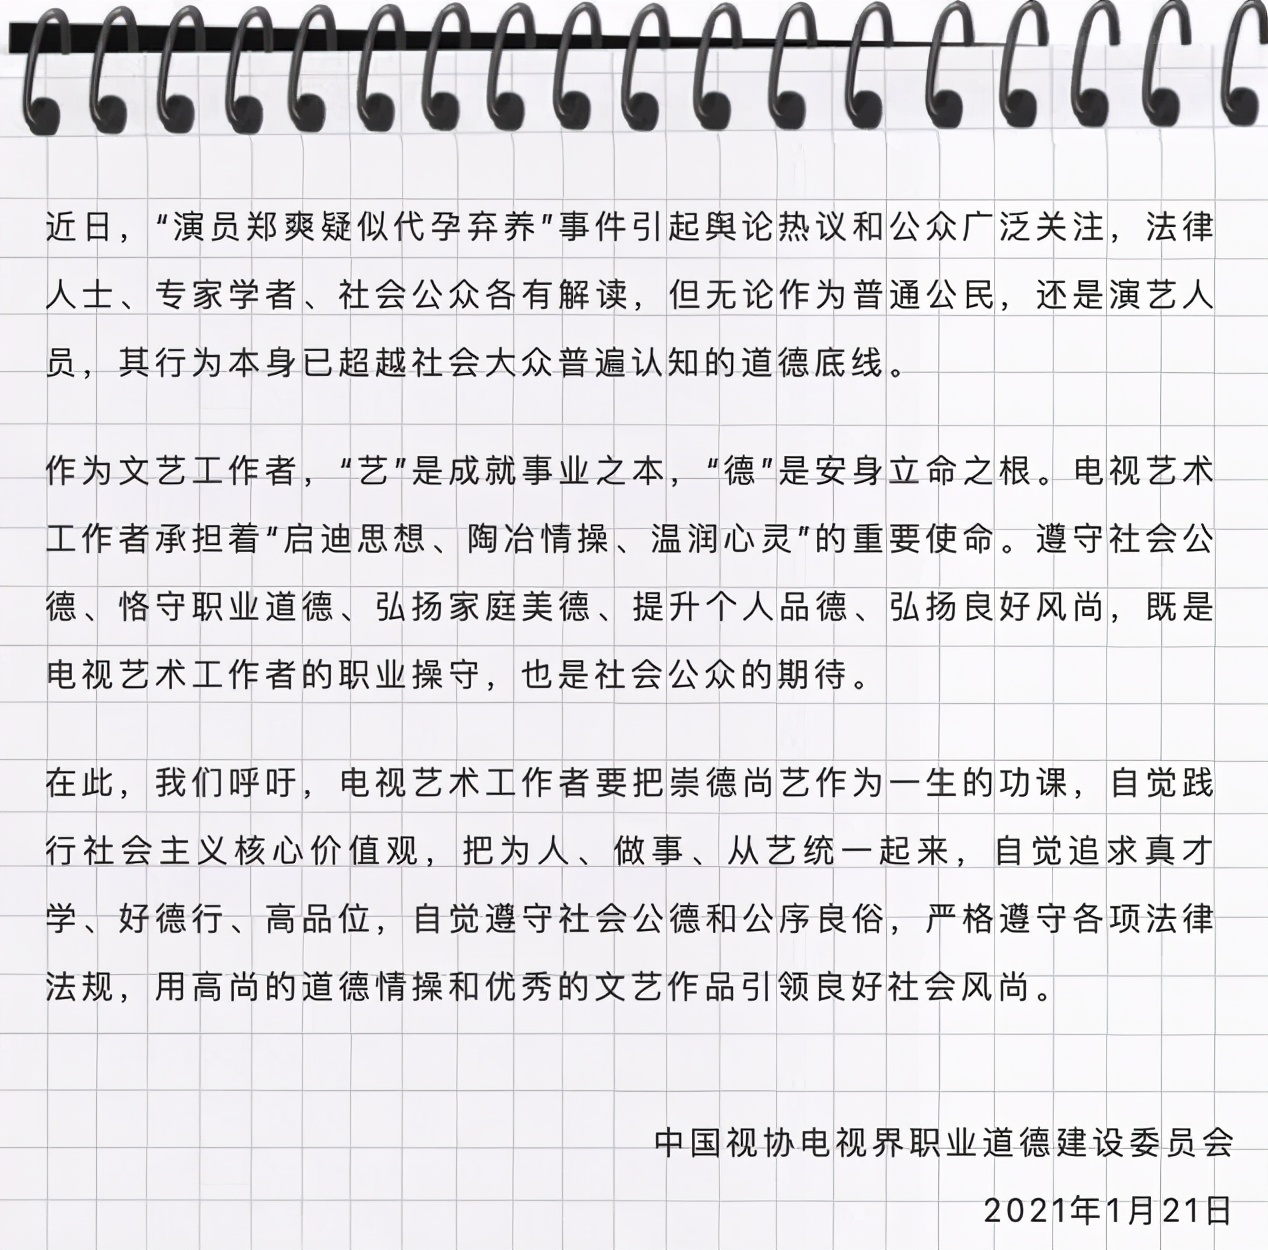 近日，“演员郑爽疑似代孕弃养”事件引起舆论热议和公众广泛关注，法律
人士、专家学者、社会公众各有解读，但无论作为普通公民，还是演艺人
员，其行为本身已超越社会大众普遍认知的道德底线。
作为文艺工作者，“艺”是成就事业之本，“德”是安身立命之根。电视艺术
工作者承担着“启迪思想、陶冶情操、温润心灵”的重要使命。遵守社会公
德、恪守职业道德、弘扬家庭美德、提升个人品德、弘扬良好风尚，既是
电视艺术工作者的职业操守，也是社会公众的期待。
在此，我们呼吁，电视艺术工作者要把崇德尚艺作为一生的功课，自觉践
行社会主义核心价值观，把为人、做事、从艺统一起来，自觉追求真才
学、好德行、高品位，自觉遵守社会公德和公序良俗，严格遵守各项法律
法规，用高尚的道德情操和优秀的文艺作品引领良好社会风尚。
中国视协电视界职业道德建设委员会
2021年1月21日